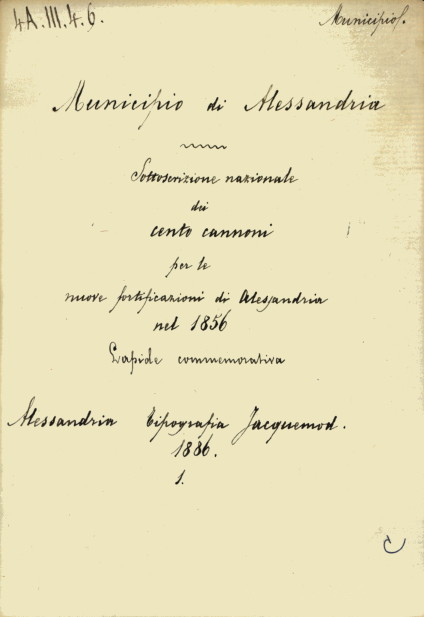 4A.III.4.6.
Municipio/.
Municipio di Alessandria
Sottoscrizione nazionale
dei
cento cannoni
per le
nuove fortificazioni di Alessandria
nel 1856
Lapide commemorativa
Alessandria Tipografia Jacquemod.
1886.
1.